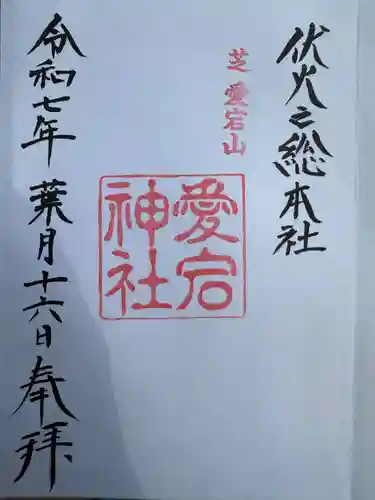 伏火之総本社
芝愛宕山
愛宕
神社
令和七年葉月十六日奉拝